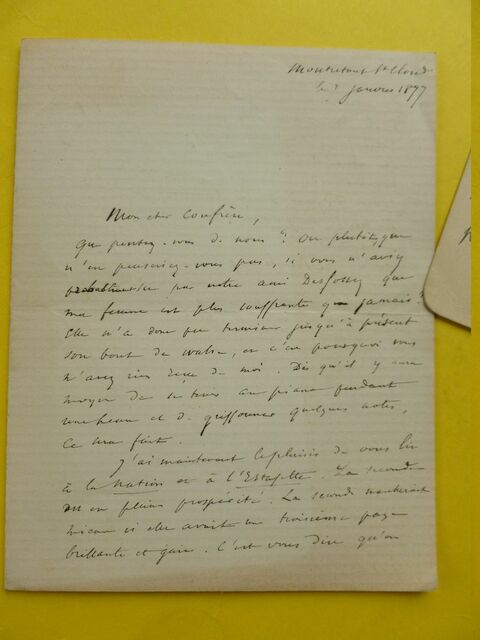 Montretout St Cloud
le 3 janvier 1877
Mon cher Confrère,
Que pensez-vous de nous ? ou plutôt, que
n'en penseriez-vous pas, si vous n'aviez
par notre ami Desfossez que
ma femme est plus souffrante que jamais ?
Elle n'a donc pu terminer jusqu'à présent
son bout de valse, et c'est pourquoi vous
n'avez rien reçu de moi. Dès qu'il y aura
moyen de se tenir au piano pendant
une heure et de griffonner quelques notes,
ce sera fait.
J'ai maintenant le plaisir de vous lire
à la Nation et à l'Estafette. La seconde
est en pleine prospérité. La seconde marcherait
mieux si elle avait une troisième page
brillante et gaie. C'est vous dire qu'on